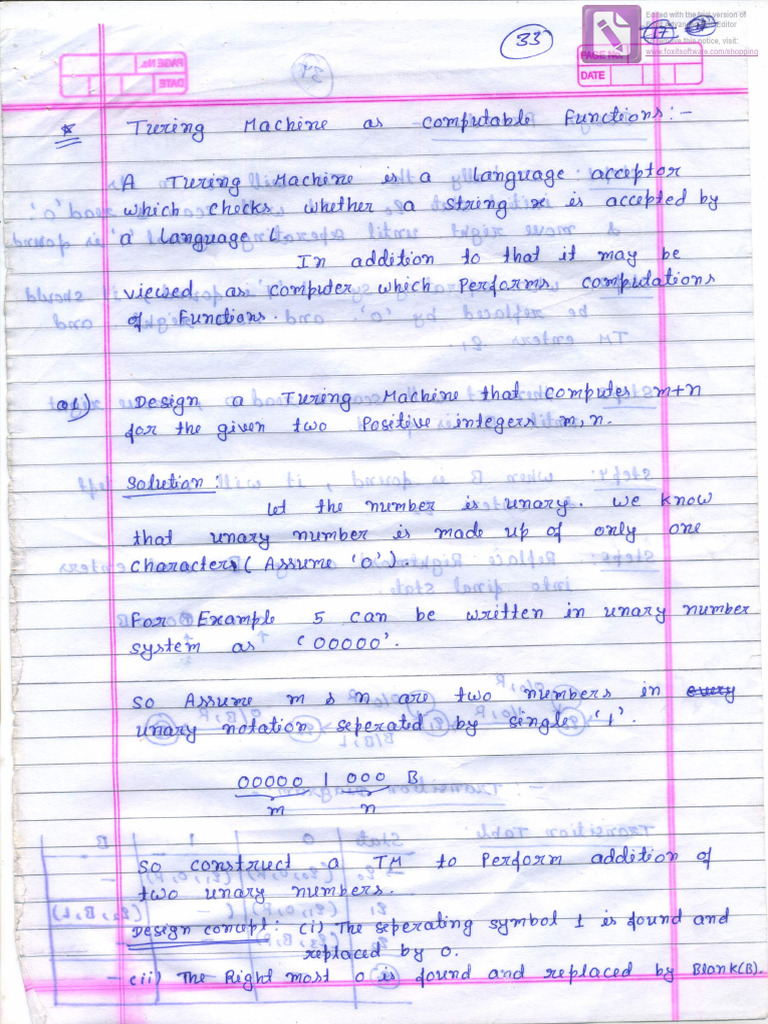 Edited with the trial version of
Foxit Advanced PDF Editor
To remove this notice, visit:
www.foxitsoftware.com/shopping
33
17
PAGE No.
DATE
* Turing Machine as Computable Functions:-
A Turing Machine is a Language acceptor
which checks whether a string x is accepted by
a Language L.
In addition to that it may be
viewed as computer which Performs computations
of Functions.
Q1) Design a Turing Machine that computes m+n
for the given two Positive integers m,n.
Solution:
Let the number is unary. We know
that unary number is made up of only one
character (Assume '0')
For Example 5 can be written in unary number
system as '00000'.
So Assume m & n are two numbers in every
unary notation seperated by single '1'.
00000 1 000 B
m n
So construct a TM to Perform addition of
two unary numbers.
Design concept: (i) The seperating symbol 1 is found and
replaced by 0.
(ii) The Right most 0 is found and replaced by Blank(B).